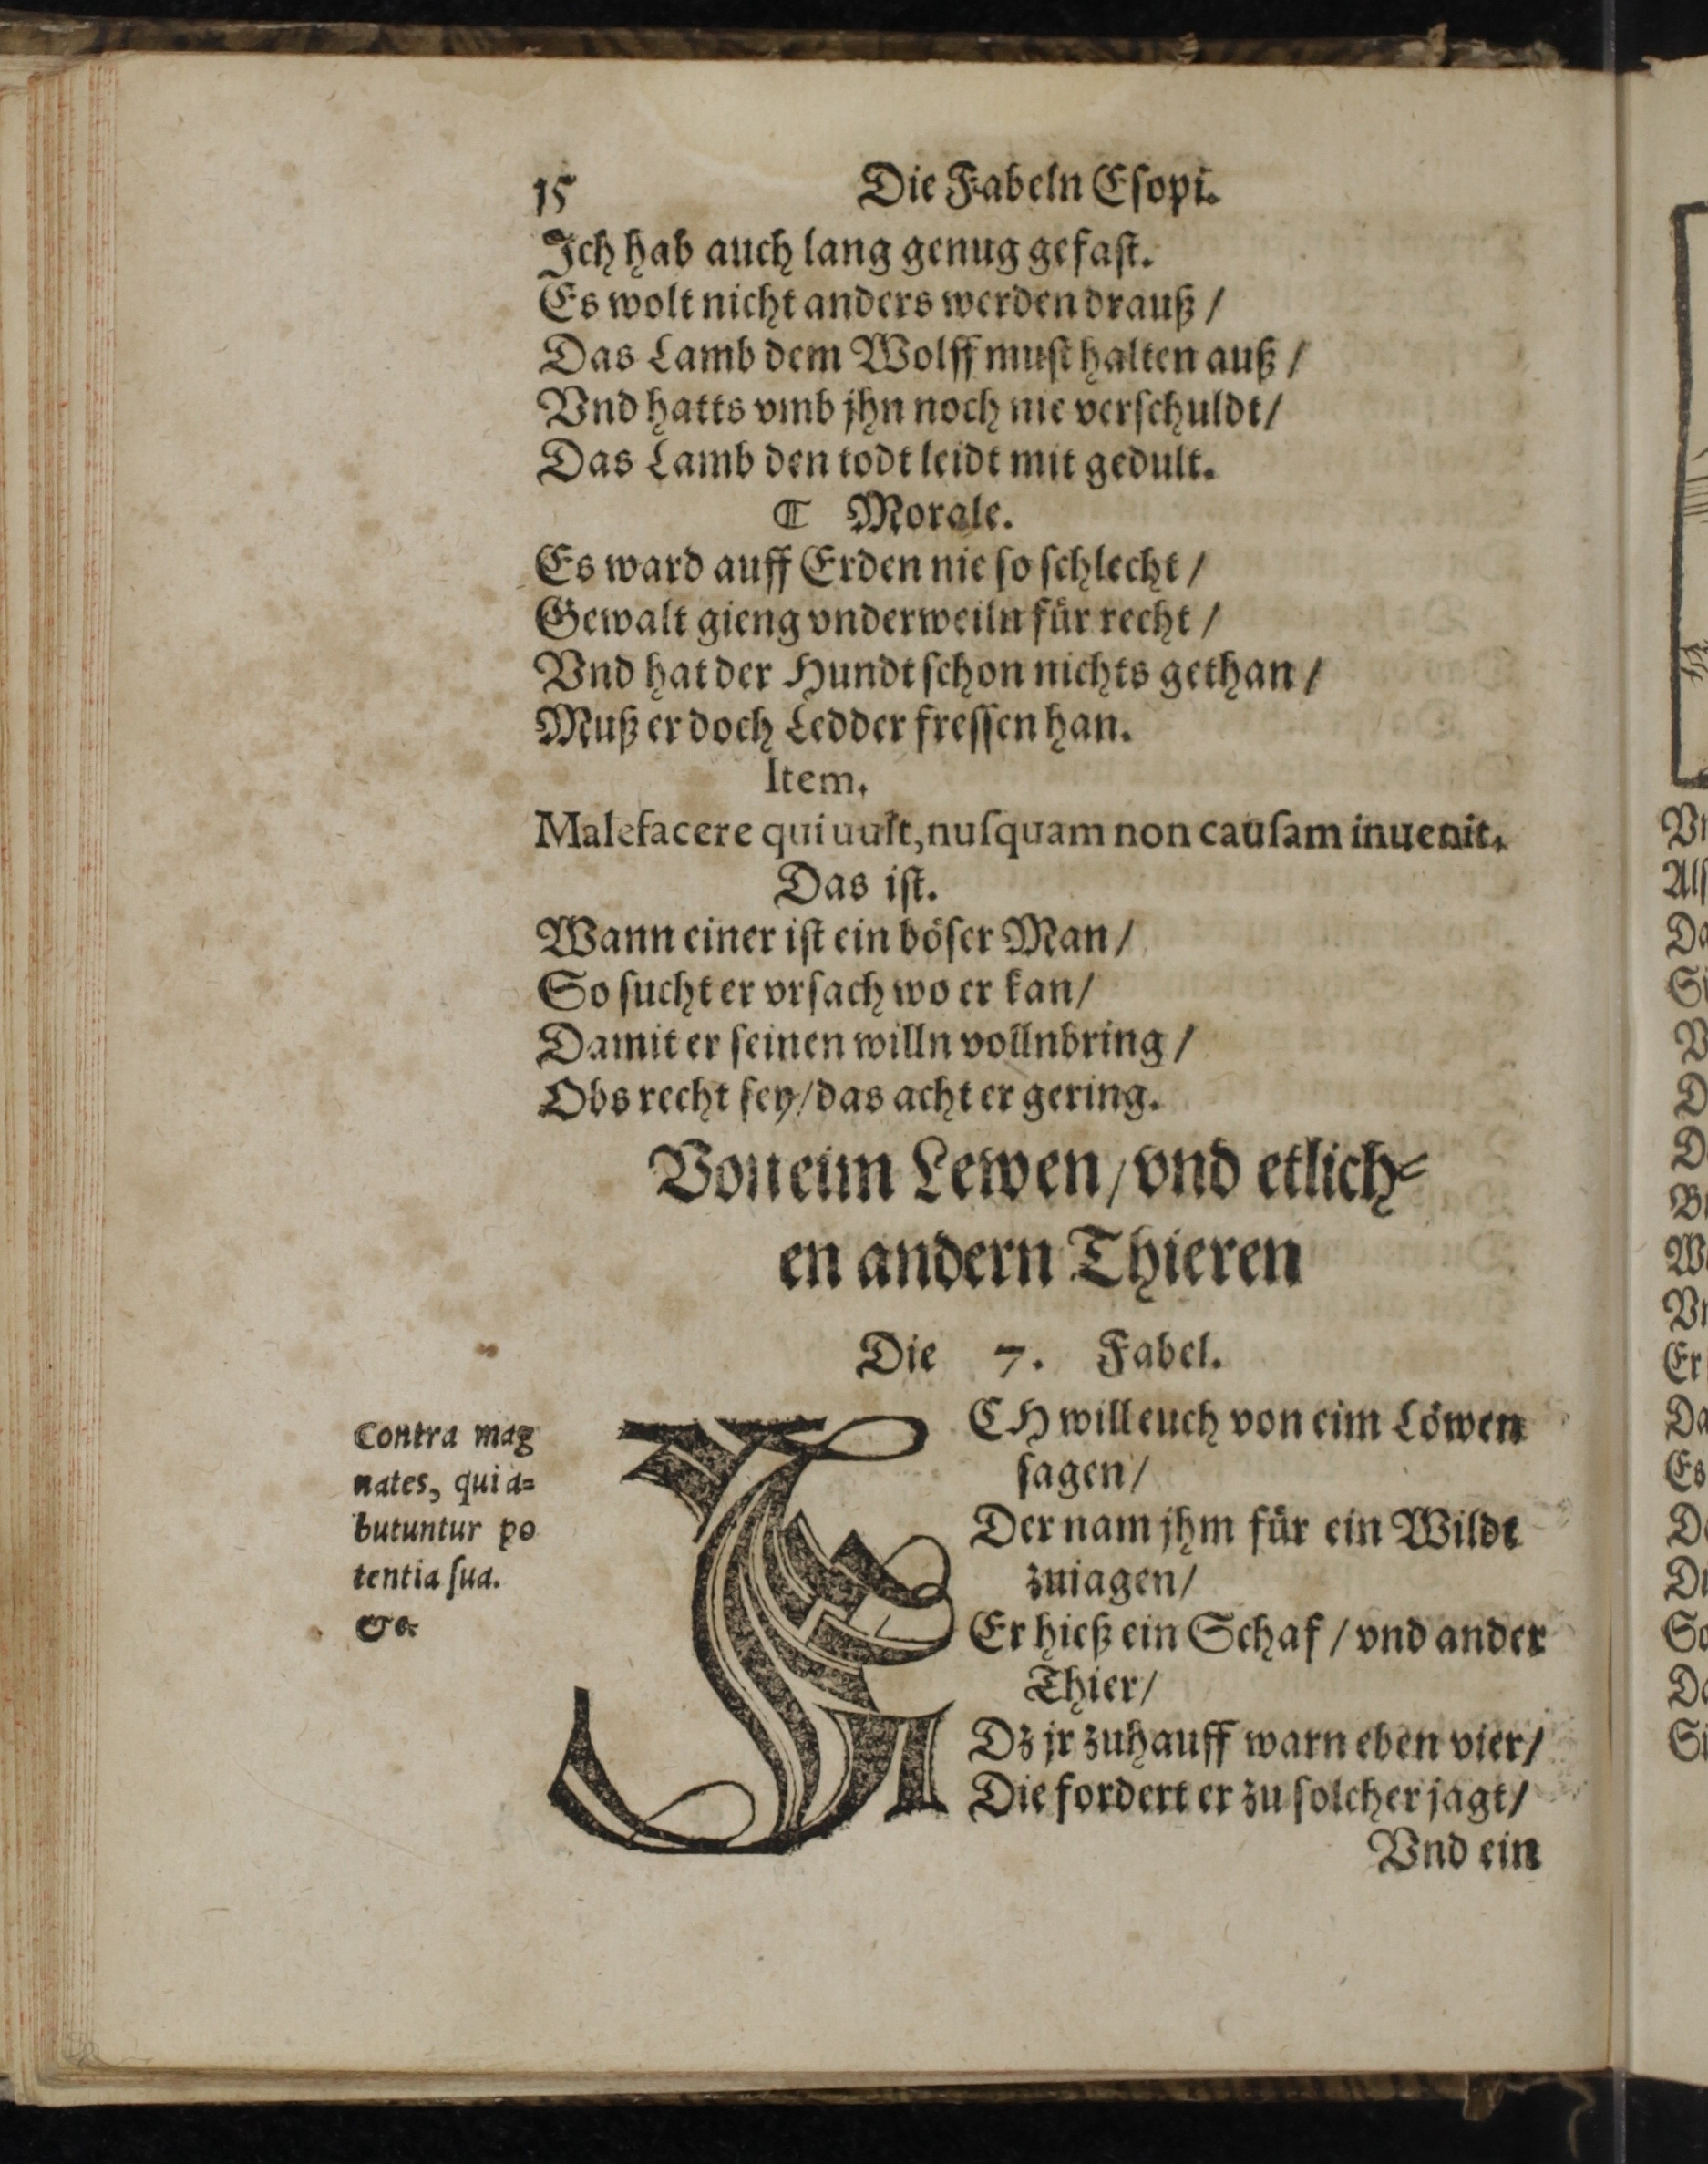 15 Die Fabeln Esopi.
Ich hab auch lang genug gefast.
Es wolt nicht anders werden drauß /
Das Lamb dem Wolff must halten auß /
Vnd hatts vmb jhn noch nie verschuldt/
Das Lamb den todt leidt mit gedult.
¶ Morale.
Es ward auff Erden nie so schlecht /
Gewalt gieng vnderweiln für recht /
Vnd hat der Hundt schon nichts gethan /
Muß er doch Ledder fressen han.
Item.
Malefacere qui uult, nusquam non causam inuenit.
Das ist.
Wann einer ist ein böser Man /
So sucht er vrsach wo er kan/
Damit er seinen willn vollnbring /
Obs recht sey/das acht er gering.
Von eim Lewen/vnd etlich⸗
en andern Thieren
Die 7. Fabel.
Contra mag
nates, qui a⸗
butuntur po
tentia sua.
&c.
ICH will euch von eim Löwen
sagen/
Der nam jhm für ein Wildt
zuiagen/
Er hieß ein Schaf / vnd ander
Thier/
Dz jr zuhauff warn eben vier/
Die fordert er zu solcher jagt/
Vnd ein
Vn
Als
Da
Si
V
D
Da
Wa
Vn
Er
Da
Es
Da
So
Da
Si